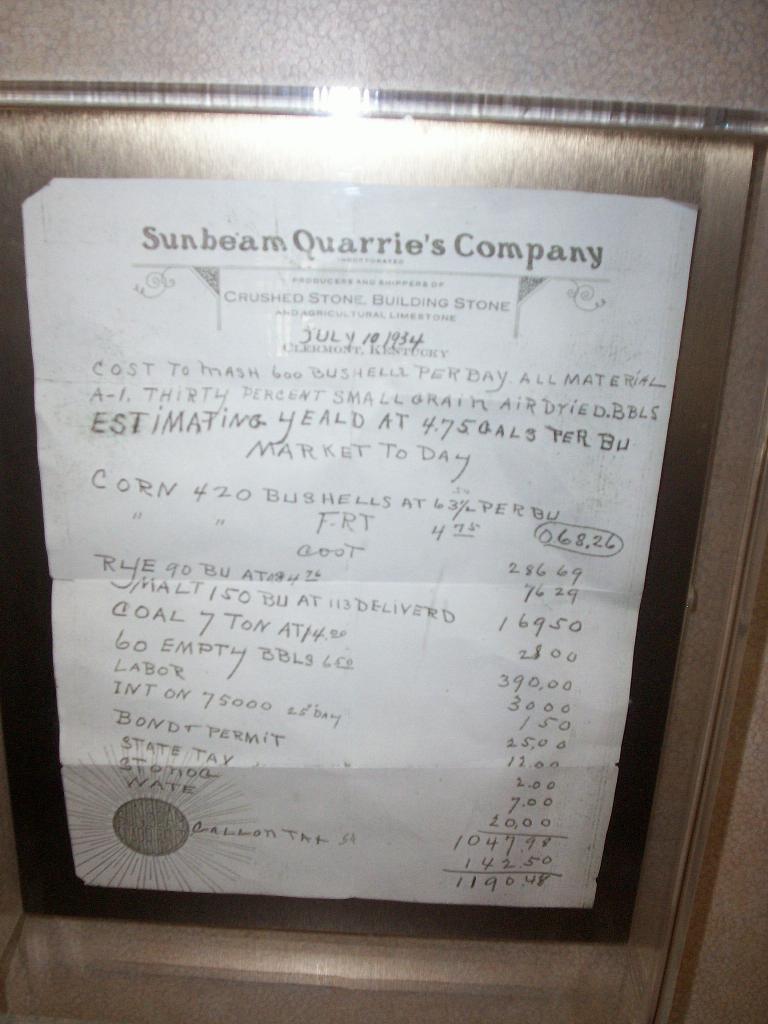 Sunbeam Quarrie's Company
INCORPORATED
PRODUCERS AND SHIPPERS OF
CRUSHED STONE, BUILDING STONE
AND AGRICULTURAL LIMESTONE
JULY 10 1934
CLERMONT, KENTUCKY
COST TO MASH 600 BUSHELLS PER DAY. ALL MATERIAL
A-1. THIRTY PERCENT SMALL GRAIN AIR DRIED. BBLS
ESTIMATING YEALD AT 4.75 GALS PER BU
MARKET TO DAY
CORN 420 BUSHELLS AT 63½ PER BU
" " FRT 4 75 068.26
COST 286 69
RYE 90 BU AT 84 76 76 29
MALT 150 BU AT 113 DELIVERD 169 50
COAL 7 TON AT 4.00 28 00
60 EMPTY BBLS 6 50 390,00
LABOR 30 00
INT ON 75000 25 DAY 1 50
BOND & PERMIT 25,00
STATE TAX 12.00
2.00
7.00
20,00
1047.98
GALLON TAX 5¢ 142.50
1190.48